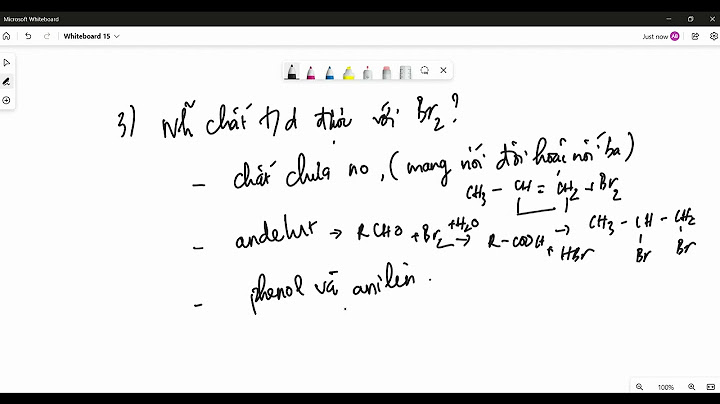 Microsoft Whiteboard
Whiteboard 15
Just now AB
3) Nh~ chất t/d được với Br₂?
- chất chưa no, (mang nối đôi hoặc nối ba)
CH₃ - CH = CH₂ + Br₂
- andehit → RCHO + Br₂ +H₂O → R-COOH + HBr
→ CH₃ - CH - CH₂
Br Br
- phenol và anilin.
100%